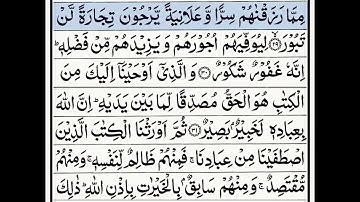 مِمَّا رَزَقْنٰهُمْ سِرًّا وَّعَلَانِيَةً يَّرْجُوْنَ تِجَارَةً لَّنْ
تَبُوْرَ ۙ﴿۲۹﴾ لِيُوَفِّيَهُمْ اُجُوْرَهُمْ وَيَزِيْدَهُمْ مِّنْ فَضْلِهٖ ؕ
اِنَّهٗ غَفُوْرٌ شَكُوْرٌ ﴿۳۰﴾ وَالَّذِيْۤ اَوْحَيْنَاۤ اِلَيْكَ مِنَ
الْكِتٰبِ هُوَ الْحَقُّ مُصَدِّقًا لِّمَا بَيْنَ يَدَيْهِ ؕ اِنَّ اللّٰهَ
بِعِبَادِهٖ لَخَبِيْرٌۢ بَصِيْرٌ ﴿۳۱﴾ ثُمَّ اَوْرَثْنَا الْكِتٰبَ الَّذِيْنَ
اصْطَفَيْنَا مِنْ عِبَادِنَا ۚ فَمِنْهُمْ ظَالِمٌ لِّنَفْسِهٖ ۚ وَمِنْهُمْ
مُّقْتَصِدٌ ۚ وَمِنْهُمْ سَابِقٌۢ بِالْخَيْرٰتِ بِاِذْنِ اللّٰهِ ؕ ذٰلِكَ